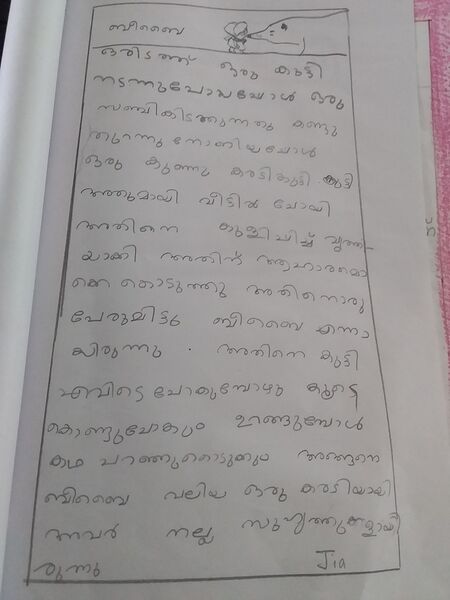 ബീബൈ
ഒരിടത്ത് ഒരു കുട്ടി
നടന്നുപോയപ്പോൾ ഒരു
സഞ്ചികിടത്തുന്നതു കണ്ടു
തുറന്നു നോക്കിയപ്പോൾ
ഒരു കുഞ്ഞു കരടികുട്ടി കുട്ടി
അതുമായി വീട്ടിൽ പോയി
അതിനെ കുളിപ്പിച്ച് വൃത്തി
യാക്കി അതിന് ആഹാരമൊ
ക്കെ കൊടുത്തു അതിനൊരു
പേരുമിട്ടു ബീബൈ എന്നാ
യിരുന്നു . അതിനെ കുട്ടി
എവിടെ പോകുമ്പോഴും കൂടെ
കൊണ്ടുപോകും ഉറങ്ങുമ്പോൾ
കഥ പറഞ്ഞുകൊടുക്കും അങ്ങനെ
ബീബൈ വലിയ ഒരു കരടിയായി
അവർ നല്ല സുഹൃത്തുക്കളായി
രുന്നു Jia